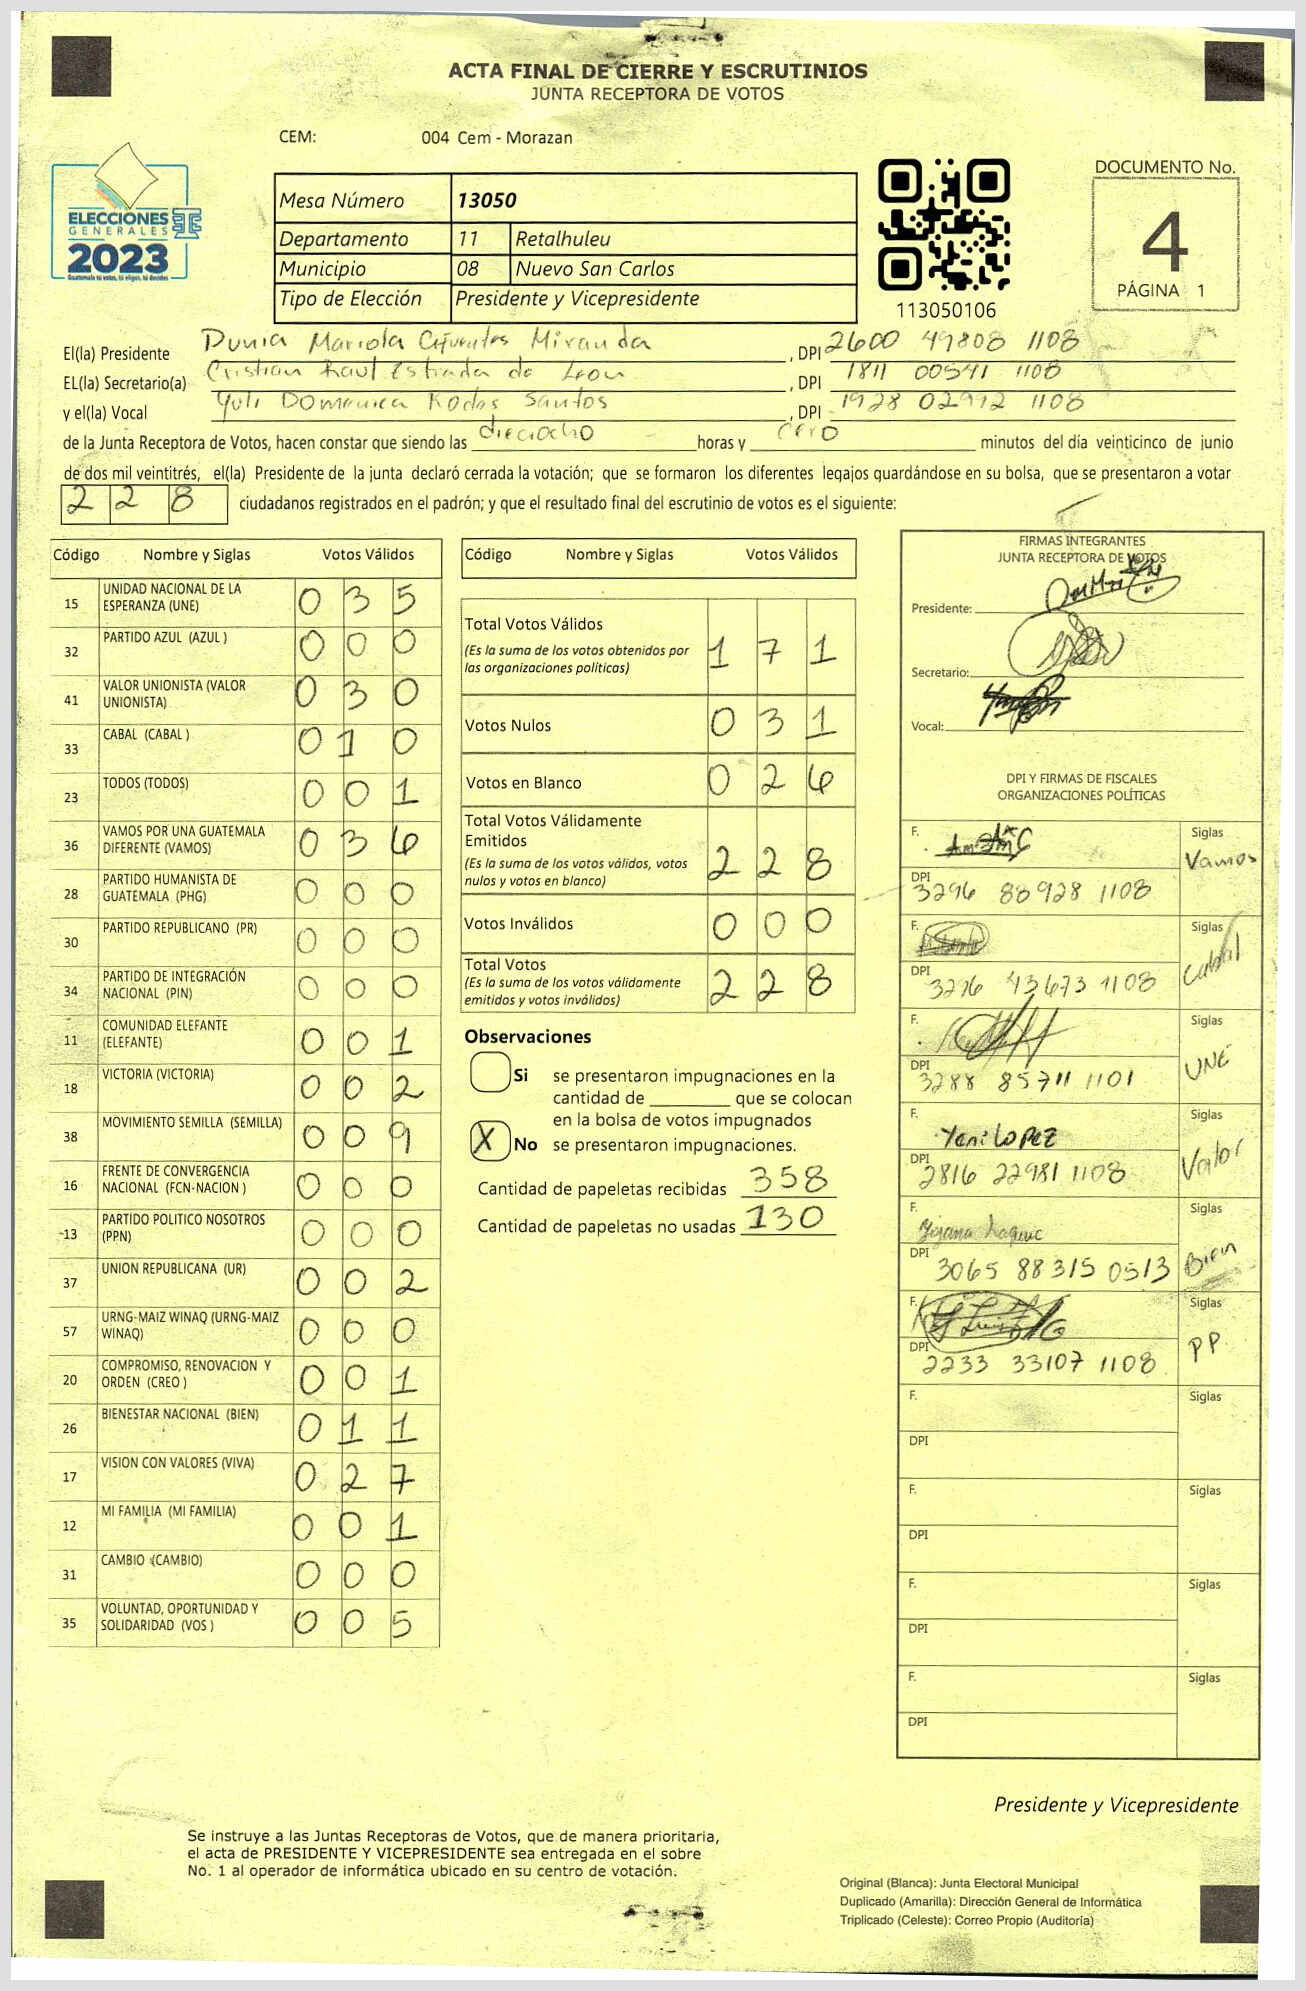 ACTA FINAL DE CIERRE Y ESCRUTINIOS
JUNTA RECEPTORA DE VOTOS
CEM: 004 Cem - Morazan
ELECCIONES
GENERALES
2023
Guatemala tú votas, tú eliges, tú decides
Mesa Número 13050
Departamento 11 Retalhuleu
Municipio 08 Nuevo San Carlos
Tipo de Elección Presidente y Vicepresidente
113050106
DOCUMENTO No.
4
PÁGINA 1
El(la) Presidente Dunia Mariola Cifuentes Miranda, DPI 2600 49808 1108
EL(la) Secretario(a) Cristian Raul Estrada de Leon, DPI 1811 00541 1108
y el(la) Vocal Yuli Domenica Rodas Santos, DPI 1928 02912 1108
de la Junta Receptora de Votos, hacen constar que siendo las dieciocho horas y cero minutos del día veinticinco de junio
de dos mil veintitrés, el(la) Presidente de la junta declaró cerrada la votación; que se formaron los diferentes legajos guardándose en su bolsa, que se presentaron a votar
228 ciudadanos registrados en el padrón; y que el resultado final del escrutinio de votos es el siguiente:
Código Nombre y Siglas Votos Válidos
15 UNIDAD NACIONAL DE LA ESPERANZA (UNE) 0 3 5
32 PARTIDO AZUL (AZUL ) 0 0 0
41 VALOR UNIONISTA (VALOR UNIONISTA) 0 3 0
33 CABAL (CABAL ) 0 1 0
23 TODOS (TODOS) 0 0 1
36 VAMOS POR UNA GUATEMALA DIFERENTE (VAMOS) 0 3 6
28 PARTIDO HUMANISTA DE GUATEMALA (PHG) 0 0 0
30 PARTIDO REPUBLICANO (PR) 0 0 0
34 PARTIDO DE INTEGRACIÓN NACIONAL (PIN) 0 0 0
11 COMUNIDAD ELEFANTE (ELEFANTE) 0 0 1
18 VICTORIA (VICTORIA) 0 0 2
38 MOVIMIENTO SEMILLA (SEMILLA) 0 0 9
16 FRENTE DE CONVERGENCIA NACIONAL (FCN-NACION ) 0 0 0
13 PARTIDO POLITICO NOSOTROS (PPN) 0 0 0
37 UNION REPUBLICANA (UR) 0 0 2
57 URNG-MAIZ WINAQ (URNG-MAIZ WINAQ) 0 0 0
20 COMPROMISO, RENOVACION Y ORDEN (CREO ) 0 0 1
26 BIENESTAR NACIONAL (BIEN) 0 1 1
17 VISION CON VALORES (VIVA) 0 2 7
12 MI FAMILIA (MI FAMILIA) 0 0 1
31 CAMBIO (CAMBIO) 0 0 0
35 VOLUNTAD, OPORTUNIDAD Y SOLIDARIDAD (VOS ) 0 0 5
Código Nombre y Siglas Votos Válidos
Total Votos Válidos 1 7 1
(Es la suma de los votos obtenidos por
las organizaciones políticas)
Votos Nulos 0 3 1
Votos en Blanco 0 2 6
Total Votos Válidamente
Emitidos 2 2 8
(Es la suma de los votos válidos, votos
nulos y votos en blanco)
Votos Inválidos 0 0 0
Total Votos 2 2 8
(Es la suma de los votos válidamente
emitidos y votos inválidos)
Observaciones
Si se presentaron impugnaciones en la
cantidad de ________ que se colocan
en la bolsa de votos impugnados
X No se presentaron impugnaciones.
Cantidad de papeletas recibidas 358
Cantidad de papeletas no usadas 130
FIRMAS INTEGRANTES
JUNTA RECEPTORA DE VOTOS
Presidente:
Secretario:
Vocal:
DPI Y FIRMAS DE FISCALES
ORGANIZACIONES POLÍTICAS
F. Siglas Vamos
DPI 3296 88928 1108
F. Siglas Cabal
DPI 3296 43673 1108
F. Siglas UNE
DPI 3288 85711 1101
F. Yeni LOPEZ Siglas Valor
DPI 2816 22981 1108
F. Siglas Bien
DPI 3065 88315 0513
F. Siglas PP
DPI 2233 33107 1108
F. Siglas
DPI
F. Siglas
DPI
F. Siglas
DPI
F. Siglas
DPI
Presidente y Vicepresidente
Se instruye a las Juntas Receptoras de Votos, que de manera prioritaria,
el acta de PRESIDENTE Y VICEPRESIDENTE sea entregada en el sobre
No. 1 al operador de informática ubicado en su centro de votación.
Original (Blanca): Junta Electoral Municipal
Duplicado (Amarilla): Dirección General de Informática
Triplicado (Celeste): Correo Propio (Auditoría)